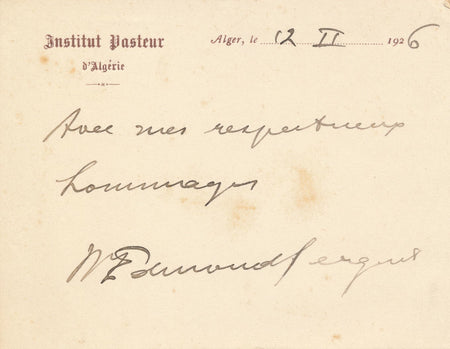 Institut Pasteur
d'Algérie
Alger, le 12 II 1926
Avec mes respectueux
hommages
Dr Edmond Sergent